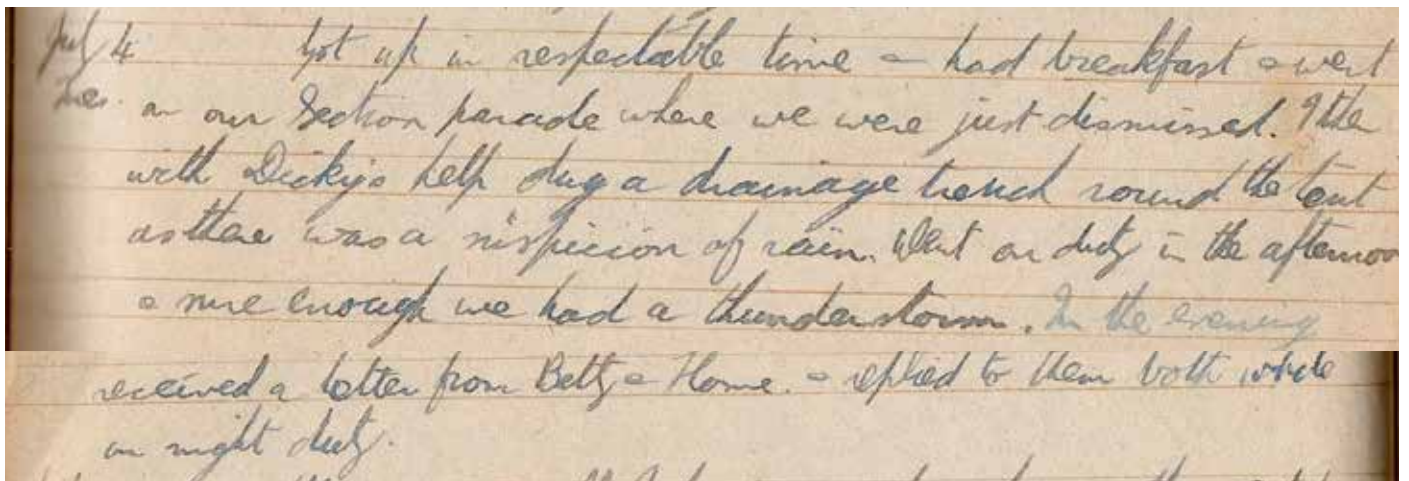 July 4 Got up in respectable time & had breakfast & went
Tues. on our Section parade where we were just dismissed. I then
with Dicky's help dug a drainage trench round the tent
as there was a suspicion of rain. Went on duty in the afternoon
& sure enough we had a thunderstorm. In the evening
received a letter from Betty & Home. & replied to them both while
on night duty.